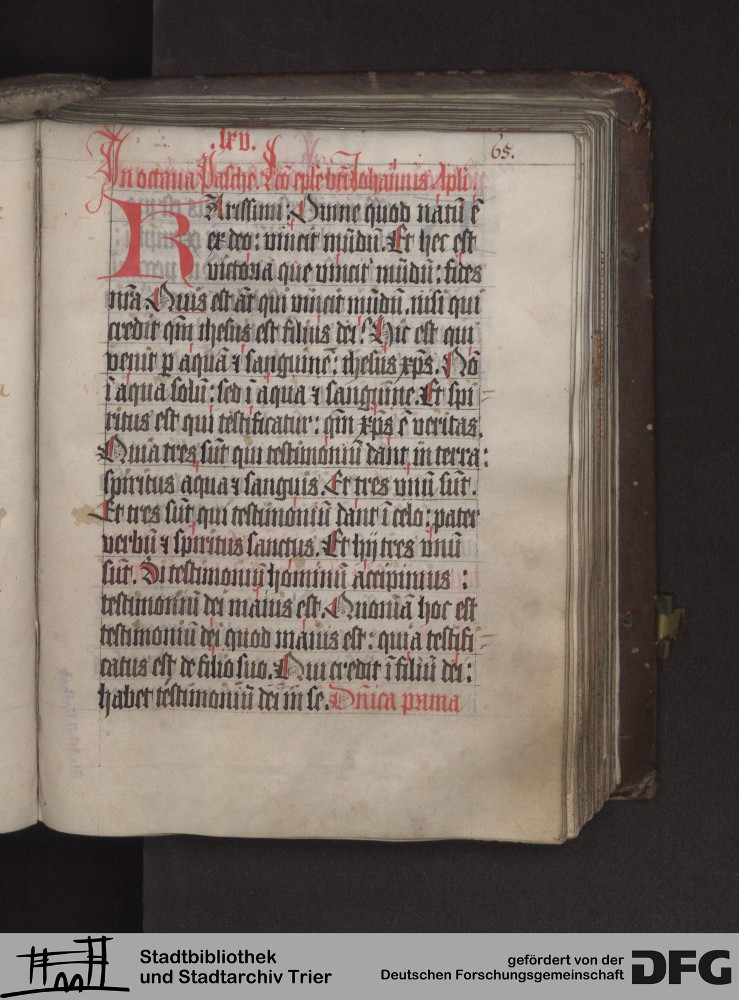 .lxv.
65.
In octaua Pasche. Lcō epľe btī Johānnis Apľi.
KArissimi: Omne quod natū ē
ex deo: vincit mūdū. Et hec est
victoria que vincit mūdū: fides
nrā. Quis est aūt qui vincit mūdū, nisi qui
credit qm̄ ihesus est filius dei? Hic est qui
venit p aquā ⁊ sanguinē: ihesus xp̄s. Nō
ī aqua solū: sed ī aqua ⁊ sanguine. Et spi
ritus est qui testificatur: qm̄ xp̄s ē veritas.
Quia tres sūt qui testimoniū dant in terra:
spiritus aqua ⁊ sanguis. Et tres vnū sūt.
Et tres sūt qui testimoniū dant ī celo: pater
verbū ⁊ spiritus sanctus. Et hij tres vnū
sūt. Si testimoniū hominū accipimus :
testimoniū dei maius est. Quoniā hoc est
testimoniū dei quod maius est: quia testifi
catus est de filio suo. Qui credit ī filiū dei:
habet testimoniū dei in se. Dn̄ica prima
Stadtbibliothek
und Stadtarchiv Trier
gefördert von der
Deutschen Forschungsgemeinschaft
DFG